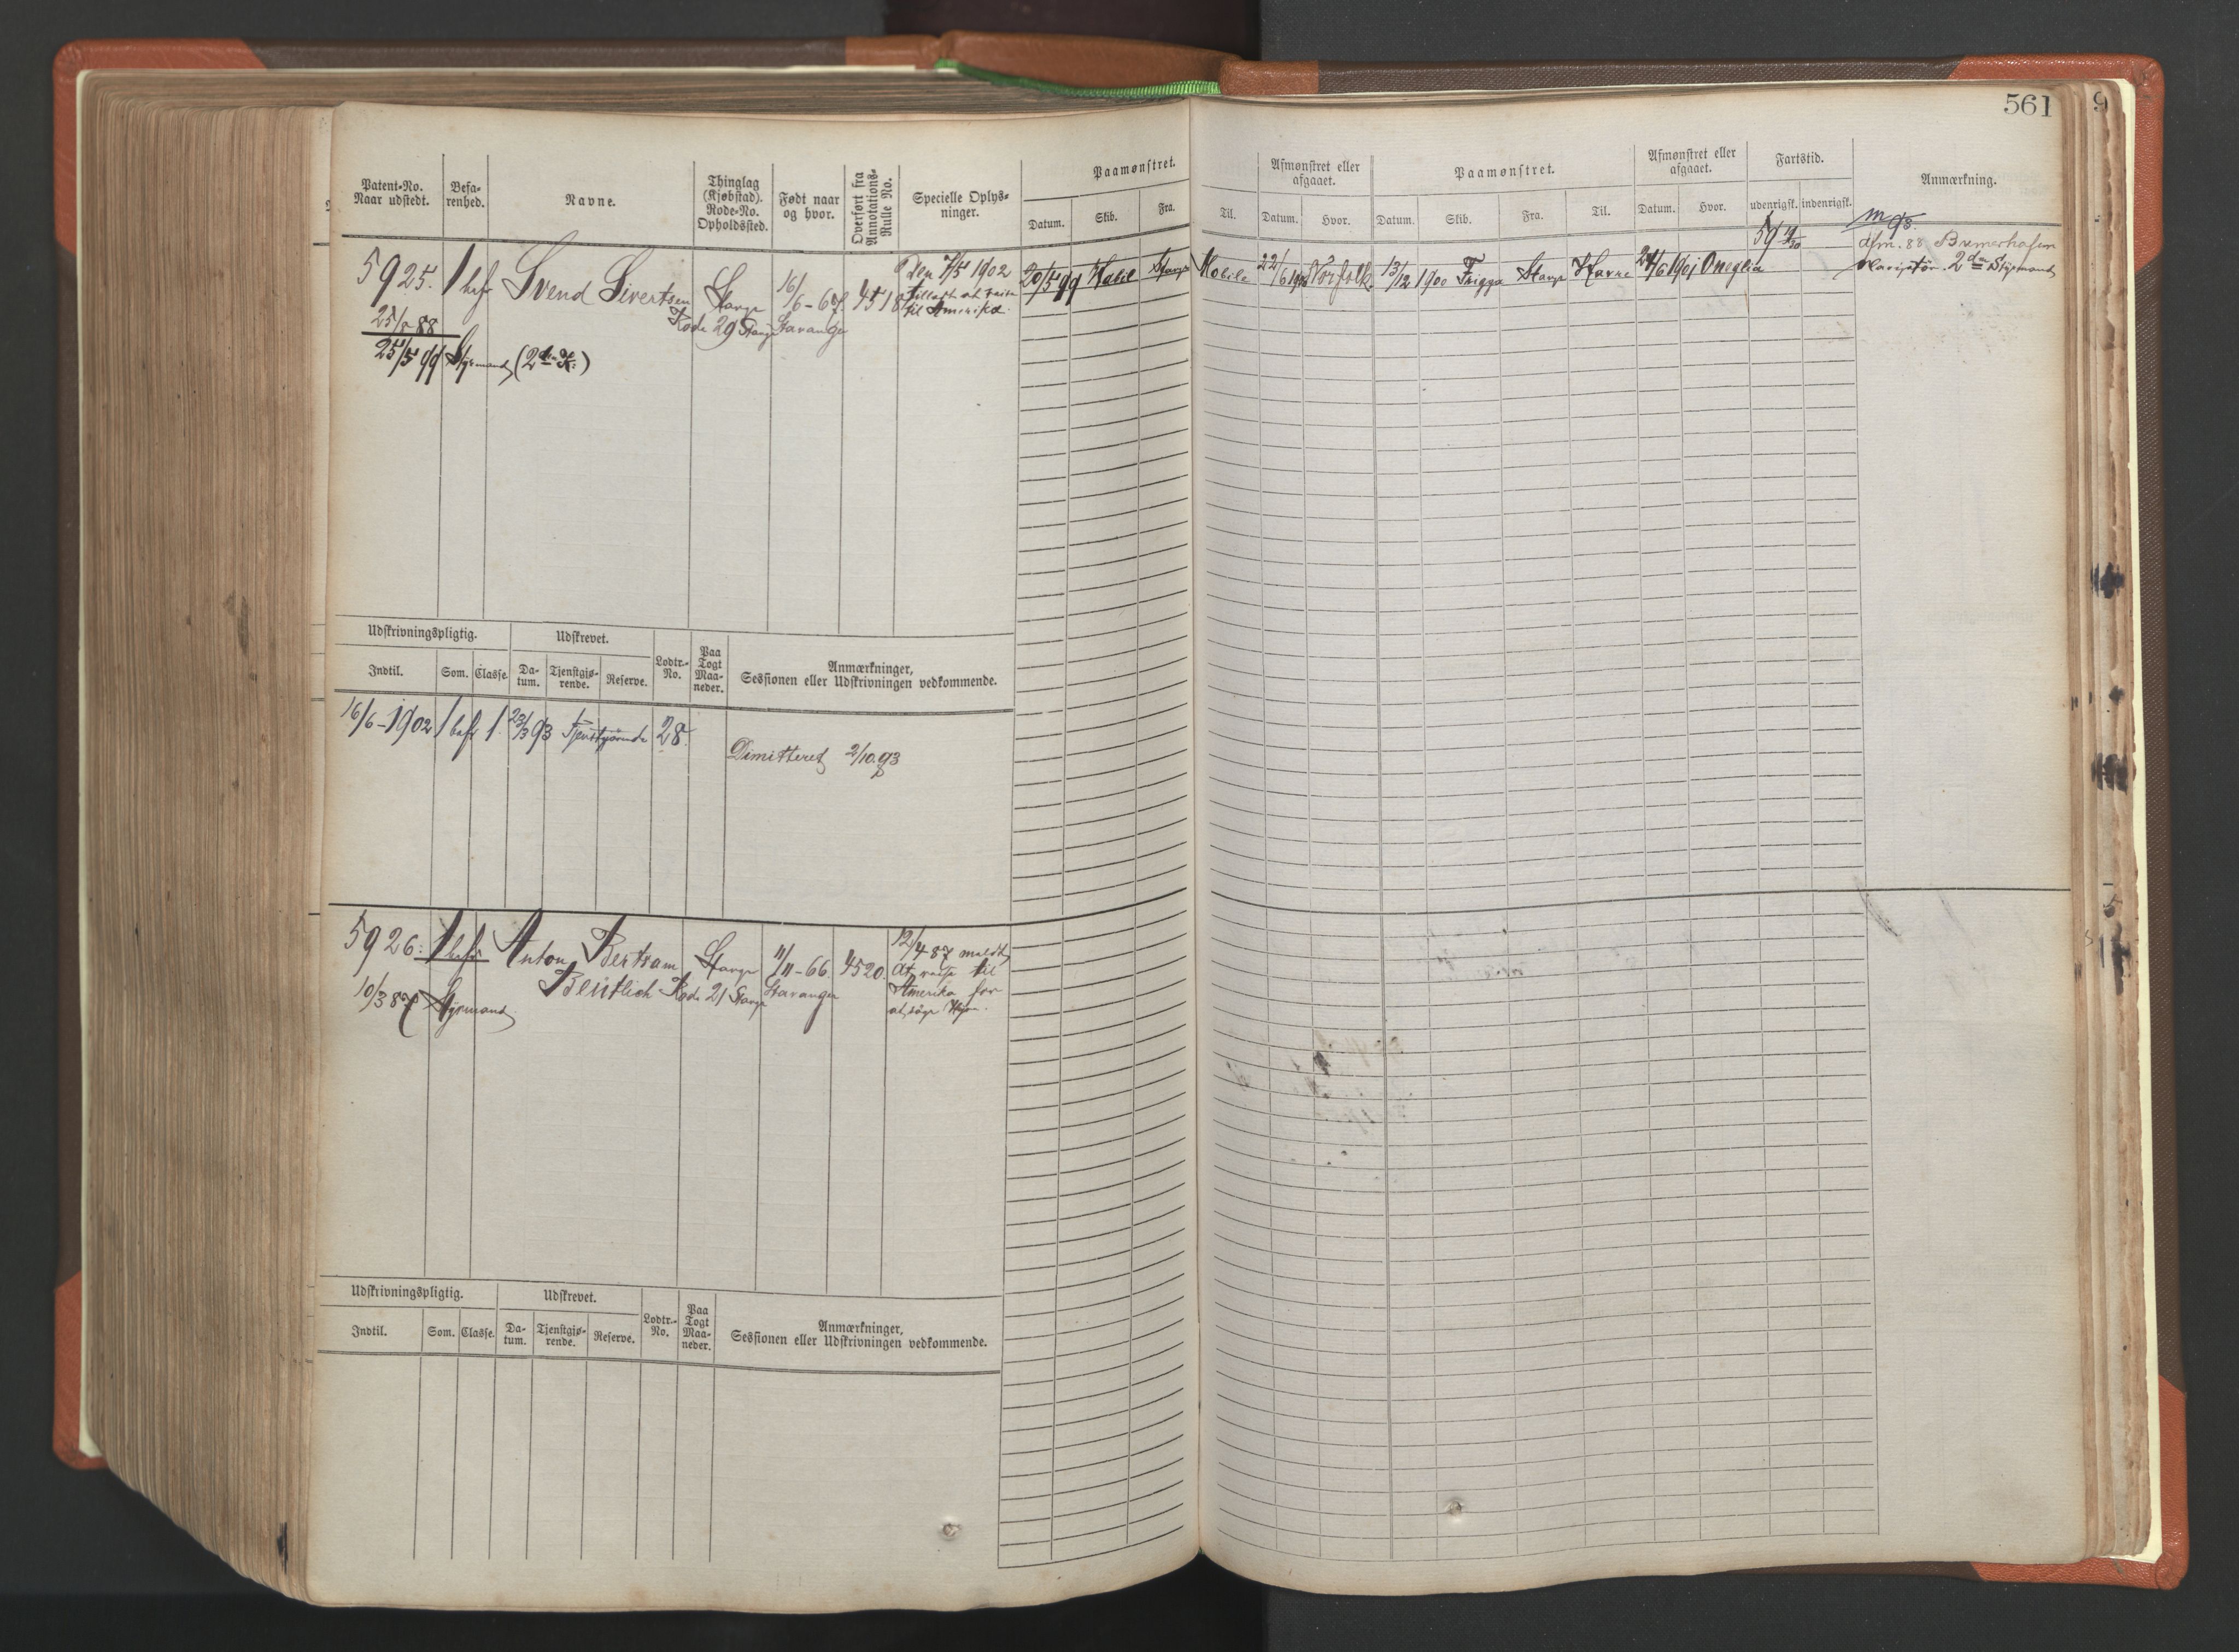 561
9
Patent-No. Naar udstedt.
Befarenhed.
Navne.
Thinglag (Kjøbstad). Rode-No. Opholdssted.
Født naar og hvor.
Overført fra Annotations-Rulle No.
Specielle Oplysninger.
Paamønstret.
Datum. Skib. Fra. Til.
Afmønstret eller afgaaet.
Datum. Hvor.
Paamønstret.
Datum. Skib. Fra. Til.
Afmønstret eller afgaaet.
Datum. Hvor.
Fartstid.
udenrigsk. indenrigsk.
Anmærkning.
5925. 1 bef Svend Sivertsen Stavgr 16/6-67. 4518
Rode 29 Stavgr Stavanger
25/5 99 Styrmand (2den Kl:)
Den 7/5 1902
tilladt at reise
til Amerika.
20/5 99 Stavgr Mobile 22/6 Norfolk. 13/12 1900 Frigga Stavgr Havre 24/6 1901 Oneglia
59
afm. 88 Bremerhafen
2den Styrmand
Udskrivningspligtig.
Udskrevet.
Indtil. Som. Classe. Datum. Tjenstgjørende. Reserve.
Lodtr.-No.
Paa Togt Maaneder.
Anmærkninger,
Sessionen eller Udskrivningen vedkommende.
16/6-1902 1 bef 1. 23/3 93 Tjenstgjørende 28.
Dimitteret 2/10.93
5926: 1 bef Anton Bertram Stavgr 11/11-66. 4520.
Beutlich Rode 21 Stavgr Stavanger
10/3 87 Styrmand.
12/4 87 meldt
at reise til
Amerika for
at søge Hyre.
Udskrivningspligtig.
Udskrevet.
Indtil. Som. Classe. Datum. Tjenstgjørende. Reserve.
Lodtr.-No.
Paa Togt Maaneder.
Anmærkninger,
Sessionen eller Udskrivningen vedkommende.